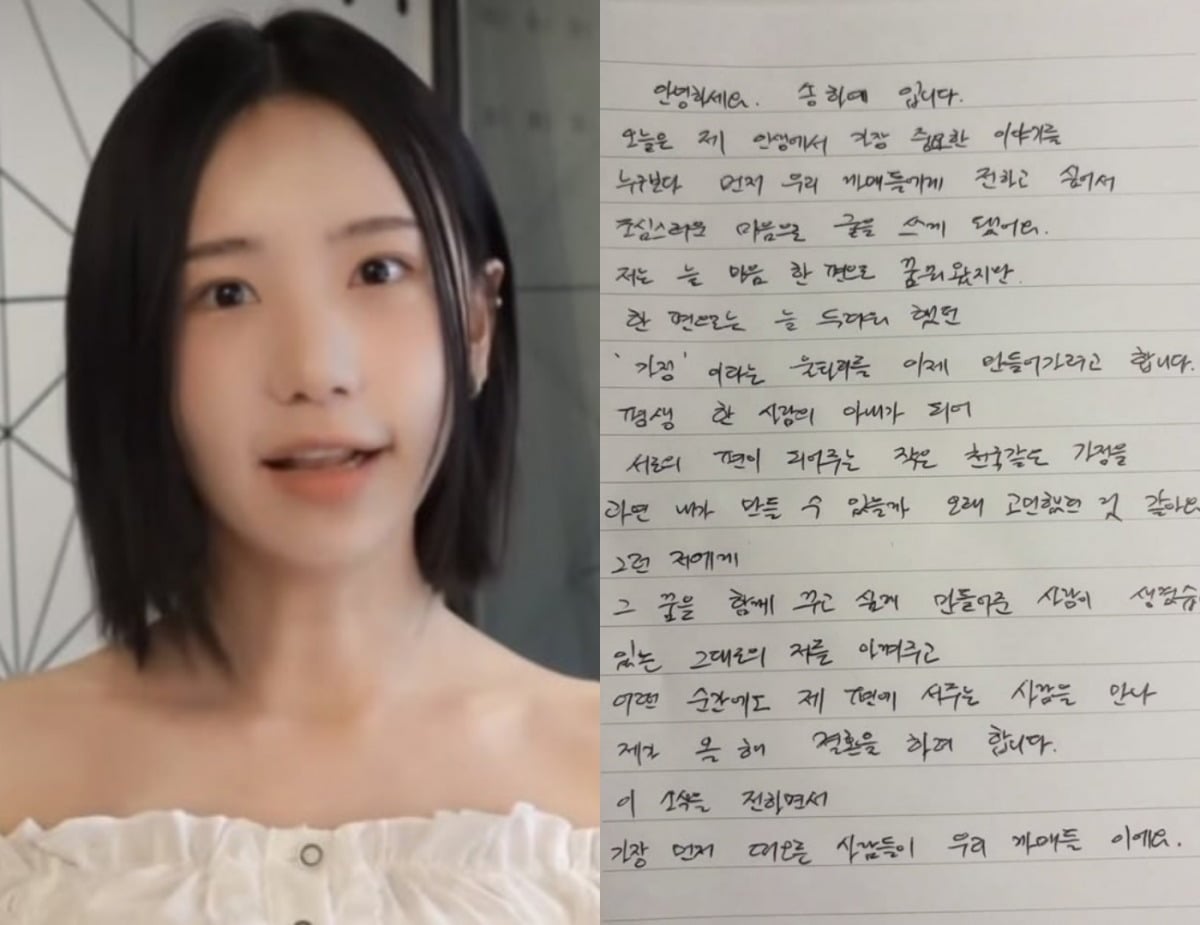 안녕하세요. 송하예 입니다.
오늘은 제 인생에서 가장 중요한 이야기를
누구보다 먼저 우리 까매들에게 전하고 싶어서
조심스러운 마음으로 글을 쓰게 됐어요.
저는 늘 마음 한 편으로 꿈꿔왔지만
한 편으로는 늘 두려워 했던
'가정' 이라는 울타리를 이제 만들어가려고 합니다.
평생 한 사람의 아내가 되어
서로의 편이 되어주는 작은 천국같은 가정을
과연 내가 만들 수 있을까 오래 고민했던 것 같아요
그런 저에게
그 꿈을 함께 꾸고 싶게 만들어준 사람이 생겼습
있는 그대로의 저를 아껴주고
어떤 순간에도 제 편에 서주는 사람을 만나
제가 올 해 결혼을 하려 합니다.
이 소식을 전하면서
가장 먼저 떠오른 사람들이 우리 까매들 이에요.